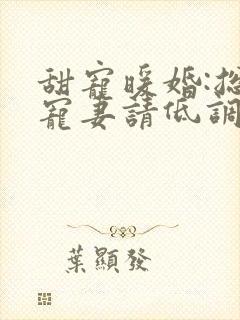 甜寵暖婚:總
寵妻請低調
葉顯發